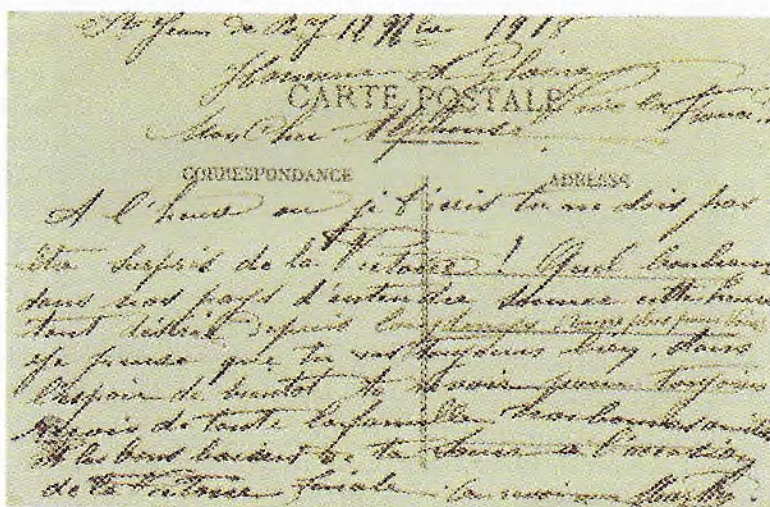 St Jean de 11 9bre 1918
Honneur & Gloire
CARTE POSTALE
la France
Mon Cher Alphonse
CORRESPONDANCE ADRESSE
A l'heure ou je t'écris tu ne dois pas
être surpris de la Victoire ! Quel bonheur
dans nos pays d'entendre sonner cette heure
tant désirée depuis longtemps
je pense que tu vas toujours bien, dans
l'espoir de bientot te revoir pour toujours
reçois de toute la famille
et les bons baisers de ta soeur a l'occasion
de la Victoire finale